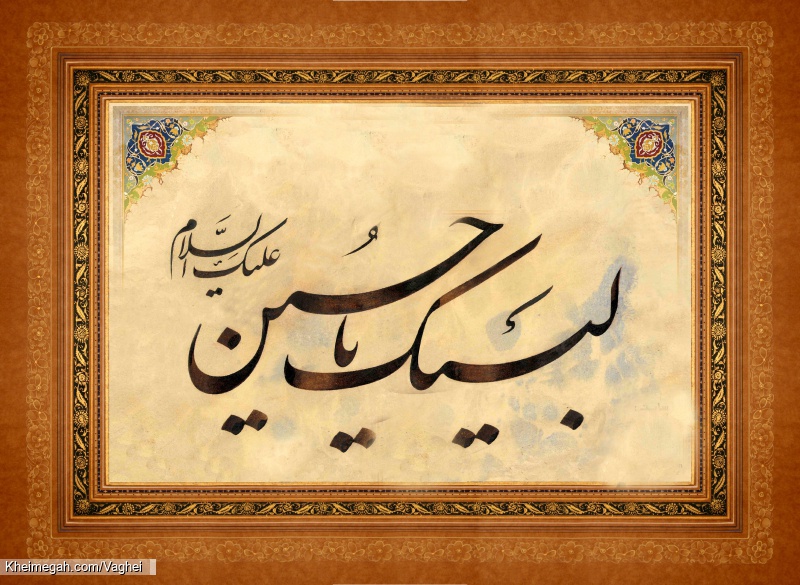 لبیک یا حُسین
علیک السَّلام
Kheimegah.com/Vaghei